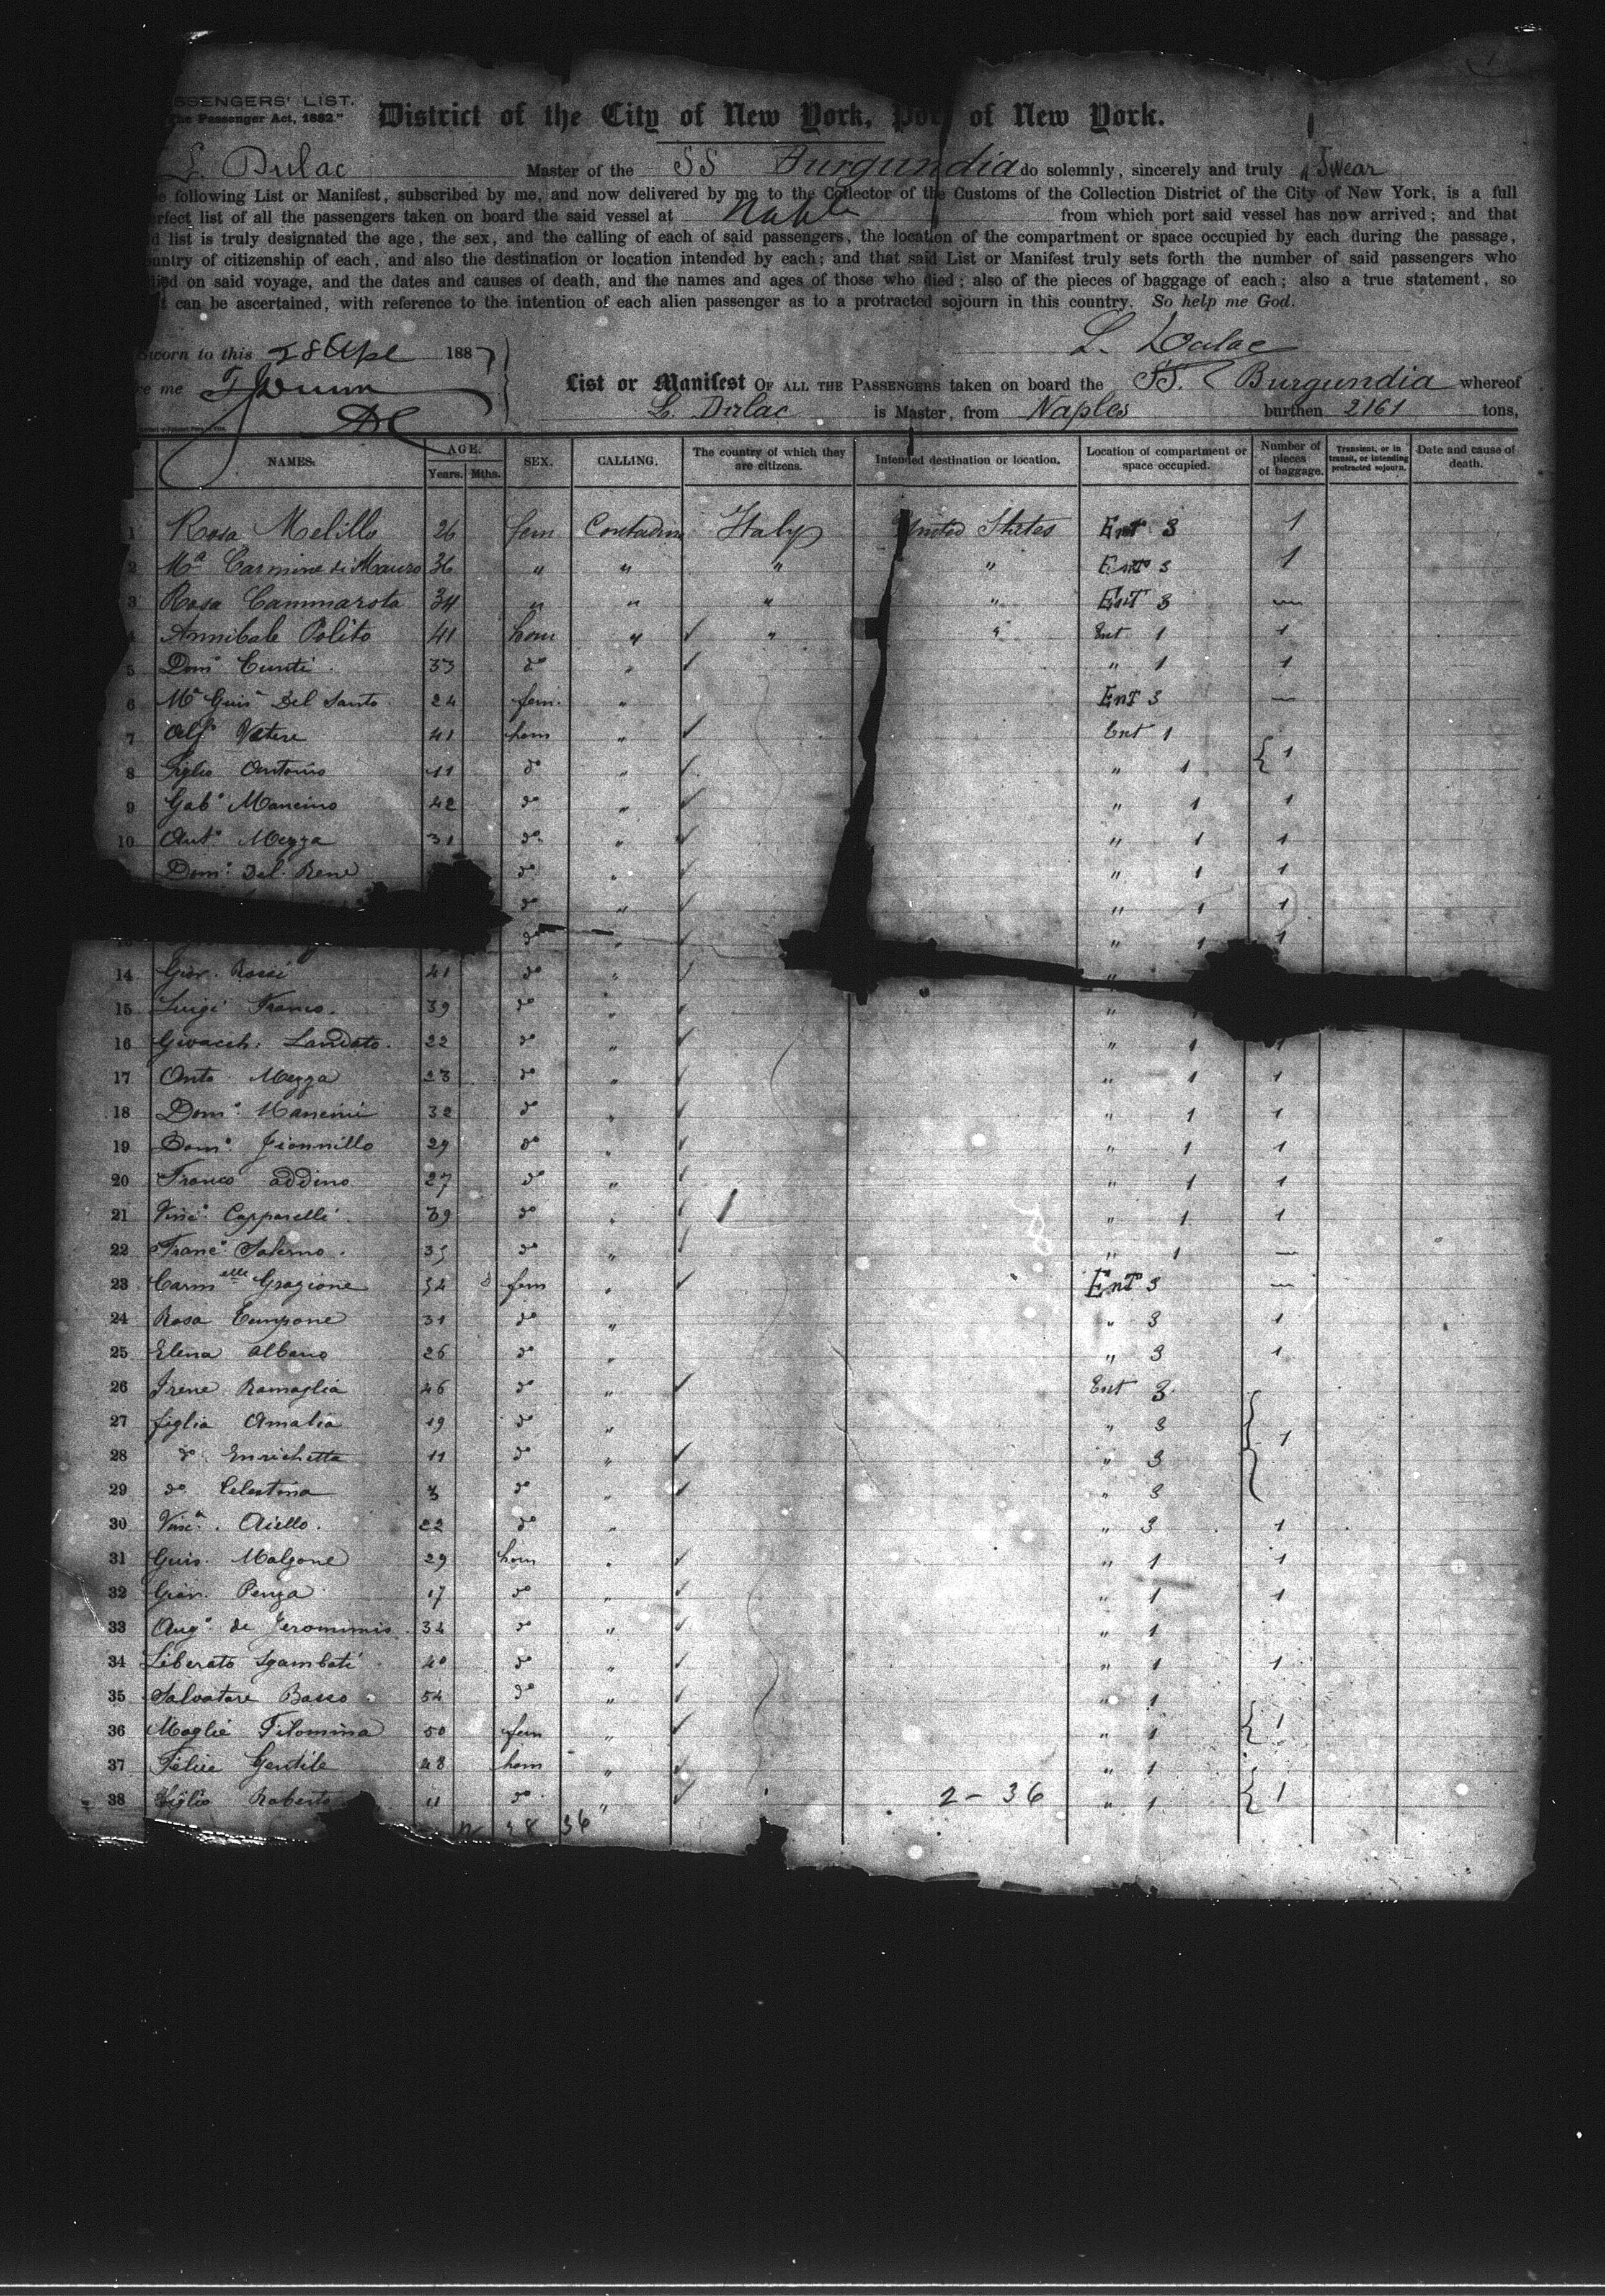 SSENGERS' LIST.
he Passenger Act, 1882."
District of the City of New York, Port of New York.
L. Dulac Master of the SS Burgundia do solemnly, sincerely and truly Swear
e following List or Manifest, subscribed by me, and now delivered by me to the Collector of the Customs of the Collection District of the City of New York, is a full
erfect list of all the passengers taken on board the said vessel at Naples from which port said vessel has now arrived; and that
d list is truly designated the age, the sex, and the calling of each of said passengers, the location of the compartment or space occupied by each during the passage,
ountry of citizenship of each, and also the destination or location intended by each; and that said List or Manifest truly sets forth the number of said passengers who
died on said voyage, and the dates and causes of death, and the names and ages of those who died; also of the pieces of baggage of each; also a true statement, so
t can be ascertained, with reference to the intention of each alien passenger as to a protracted sojourn in this country. So help me God.
L. Dulac
Sworn to this 28 Apl 1887
re me
List or Manifest OF ALL THE PASSENGERS taken on board the SS. Burgundia whereof
L. Dulac is Master, from Naples burthen 2161 tons,
NAMES. AGE. Years. Mths. SEX. CALLING. The country of which they are citizens. Intended destination or location. Location of compartment or space occupied. Number of pieces of baggage. Transient, or in transit, or intending protracted sojourn. Date and cause of death.
1 Rosa Melillo 26 fem Contadin Italy United States Ent 3 1
2 Ma Carmine di Mauro 36 " " " " Ent 3 1
3 Rosa Cammarota 34 " " " " Ent 3 —
4 Annibale Polito 41 hom " ✓ " " Ent 1 1
5 Domo Curti 33 do " ✓ " 1 1
6 Ma Guisa Del Santo 24 fem. " Ent 3 —
7 Alfo Vatere 41 hom " ✓ Ent 1
8 figlio Antonio 11 do " ✓ " 1 { 1
9 Gabo Mancino 42 do " ✓ " 1 1
10 Anto Mezza 31 do " ✓ " 1 1
Domo Del Rene do " ✓ " 1 1
do " ✓ " 1 1
do " ✓ " 1 1
14 Giov. Rossi 41 do " ✓ "
15 Luigi Franco. 39 do " ✓ "
16 Givacch. Landato. 22 do " ✓ " 1 1
17 Anto Mezza 23 do " ✓ " 1 1
18 Domo Mancini 32 do " ✓ " 1 1
19 Domo Jionnillo 29 do " ✓ " 1 1
20 Franco Addino 27 do " ✓ " 1 1
21 Vinco Capparelli 39 do " ✓ " 1 1
22 Franco Salerno. 35 do " ✓ " 1 —
23 Carmelle Grazione 34 fem " ✓ Ent 3 —
24 Rosa Tempone 31 do " " 3 1
25 Elena Albano 26 do " " 3 1
26 Irene Ramaglia 46 do " ✓ Ent 3
27 figlia Amalia 19 do " " 3
28 do Enrichetta 11 do " ✓ " 3 { 1
29 do Celestina 3 do " ✓ " 3
30 Vinca. Aiello. 22 do " " 3 1
31 Guis. Malgone 29 hom " ✓ " 1 1
32 Gian. Penza 17 do " ✓ " 1 1
33 Augo de Jerominis. 34 do " ✓ " 1
34 Liberato Sgambati 40 do " ✓ " 1 1
35 Salvatore Basso 54 do " ✓ " 1
36 Moglie Filomina 50 fem " ✓ " 1 { 1
37 Felice Gentile 48 hom " ✓ " 1
38 figlio Roberto 11 do " ✓ 2 - 36 " 1 { 1
38 36